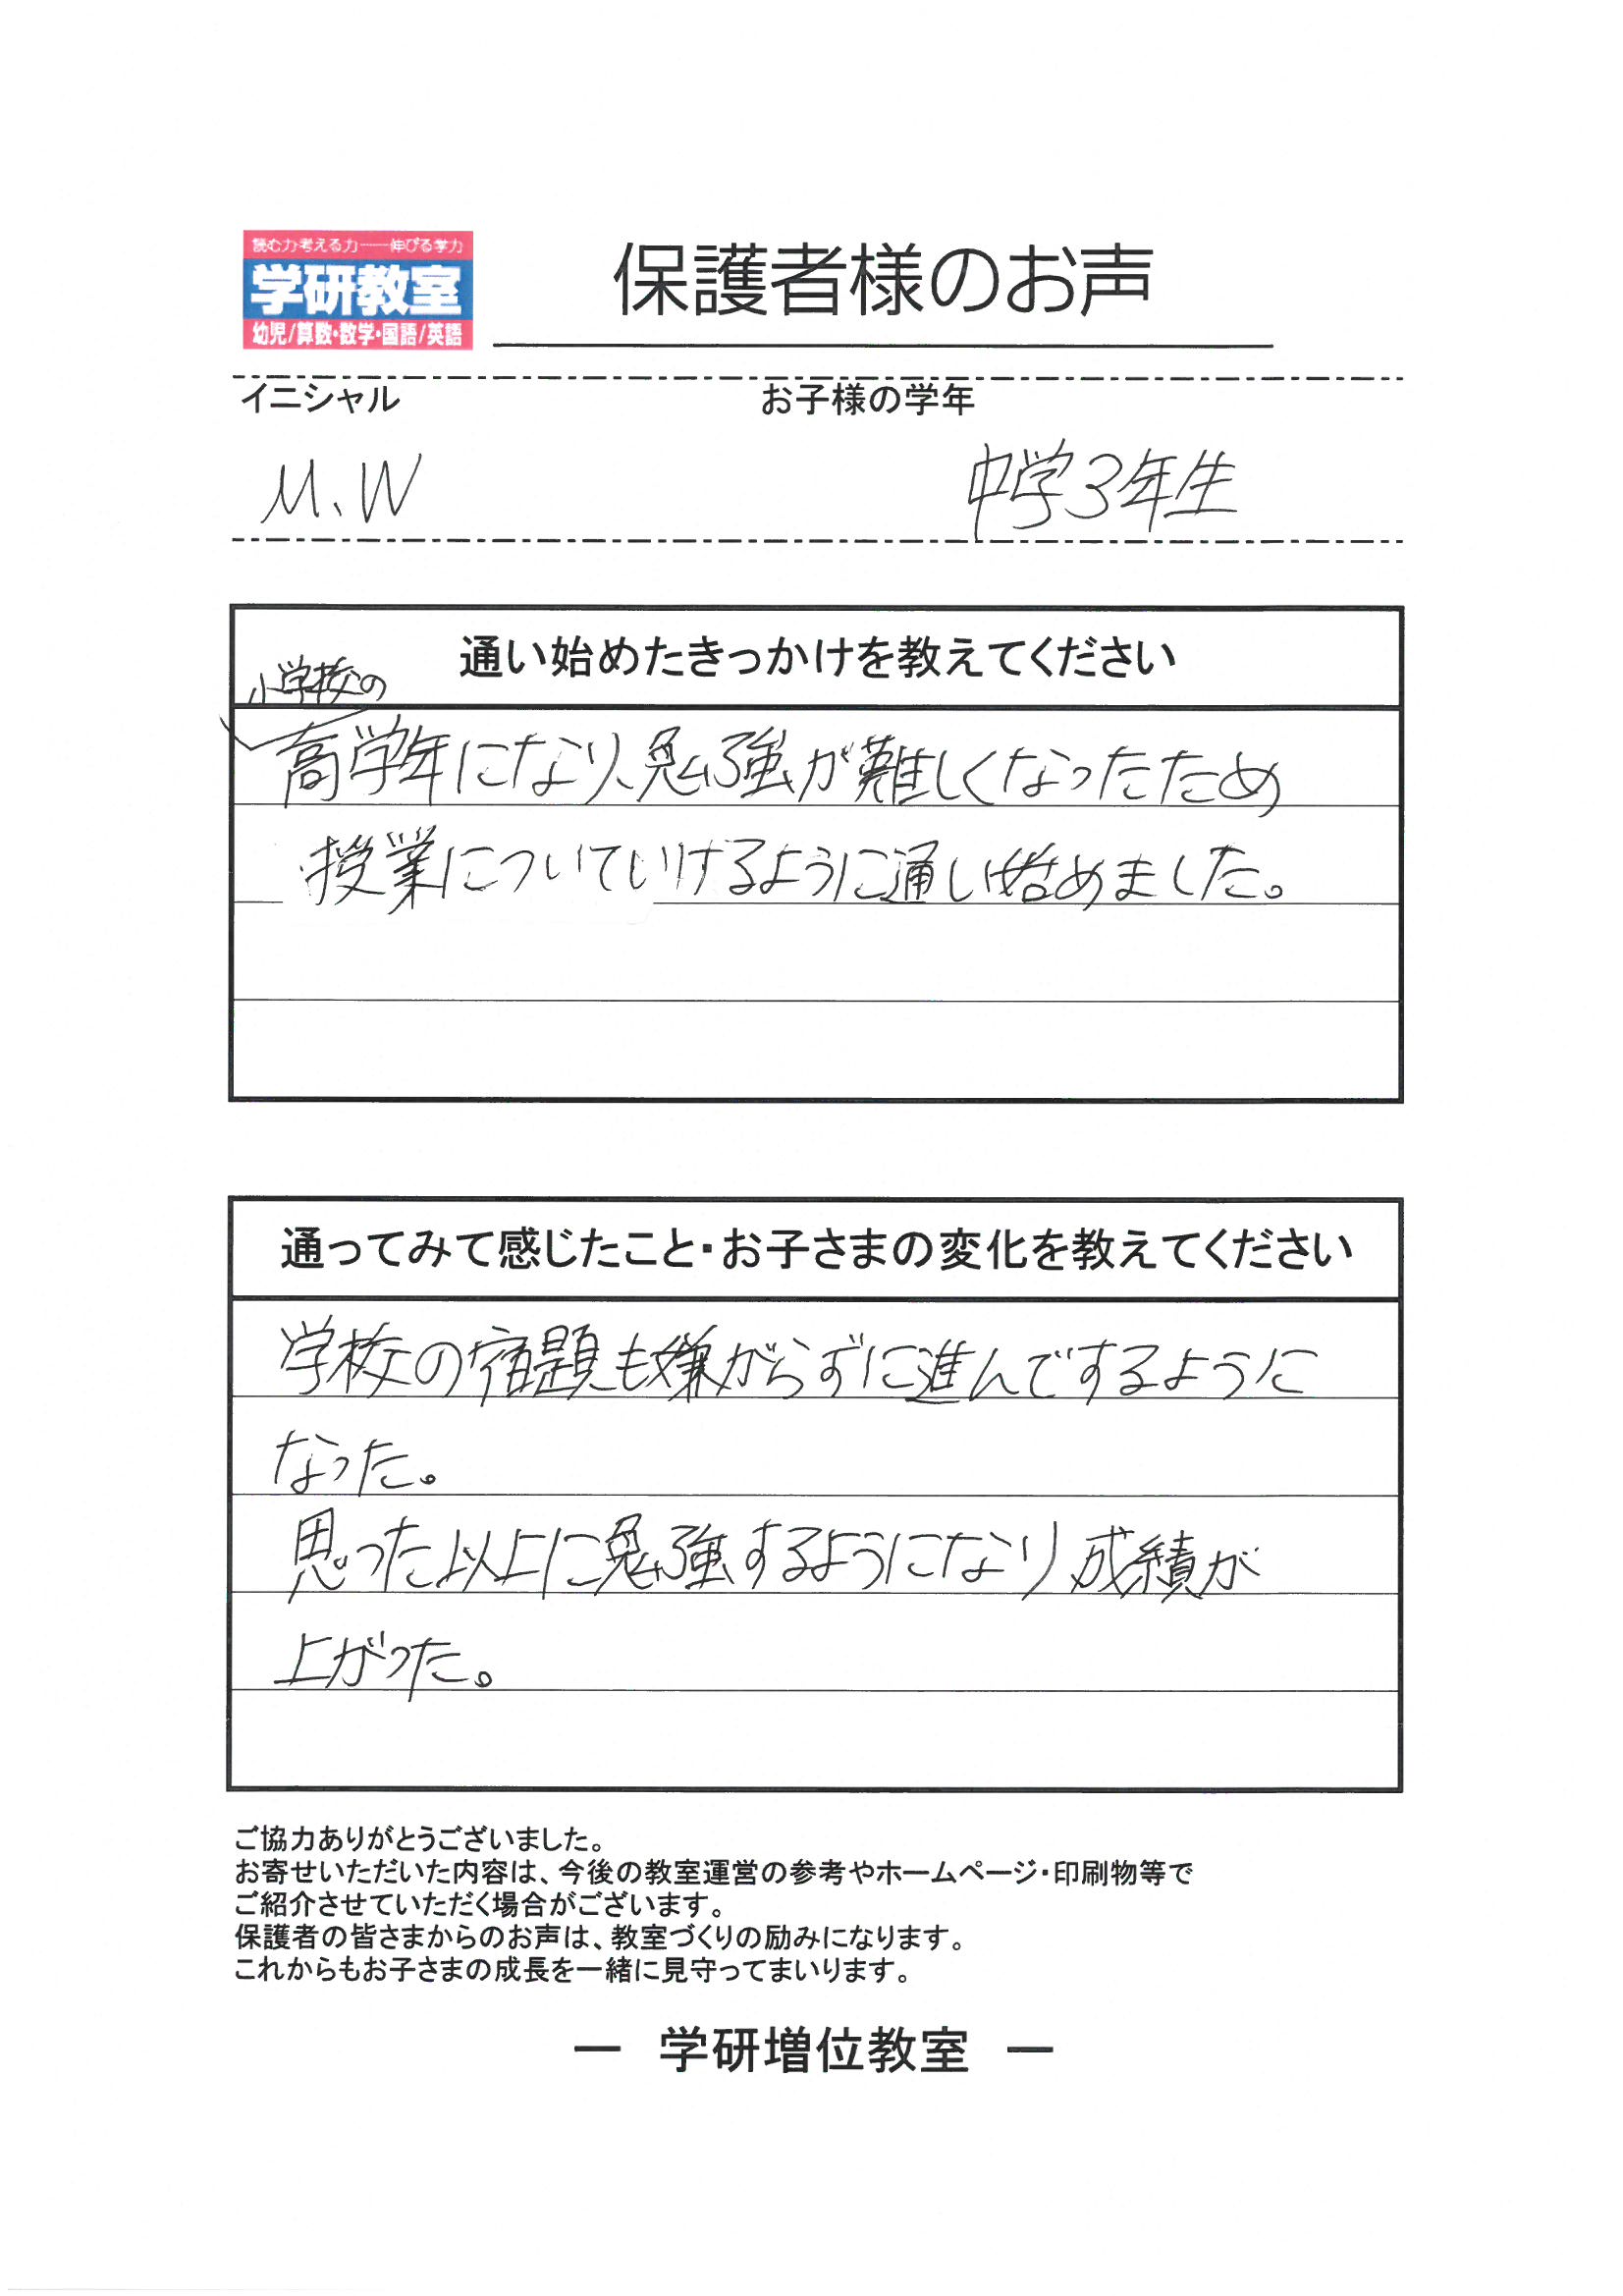 読む力考える力——伸びる学力
学研教室
幼児/算数・数学・国語/英語
保護者様のお声
イニシャル
お子様の学年
M、W
中学3年生
通い始めたきっかけを教えてください
小学校の
高学年になり、勉強が難しくなったため
授業についていけるように通い始めました。
通ってみて感じたこと・お子さまの変化を教えてください
学校の宿題も嫌がらずに進んでするように
なった。
思った以上に勉強するようになり成績が
上がった。
ご協力ありがとうございました。
お寄せいただいた内容は、今後の教室運営の参考やホームページ・印刷物等で
ご紹介させていただく場合がございます。
保護者の皆さまからのお声は、教室づくりの励みになります。
これからもお子さまの成長を一緒に見守ってまいります。
— 学研増位教室 —